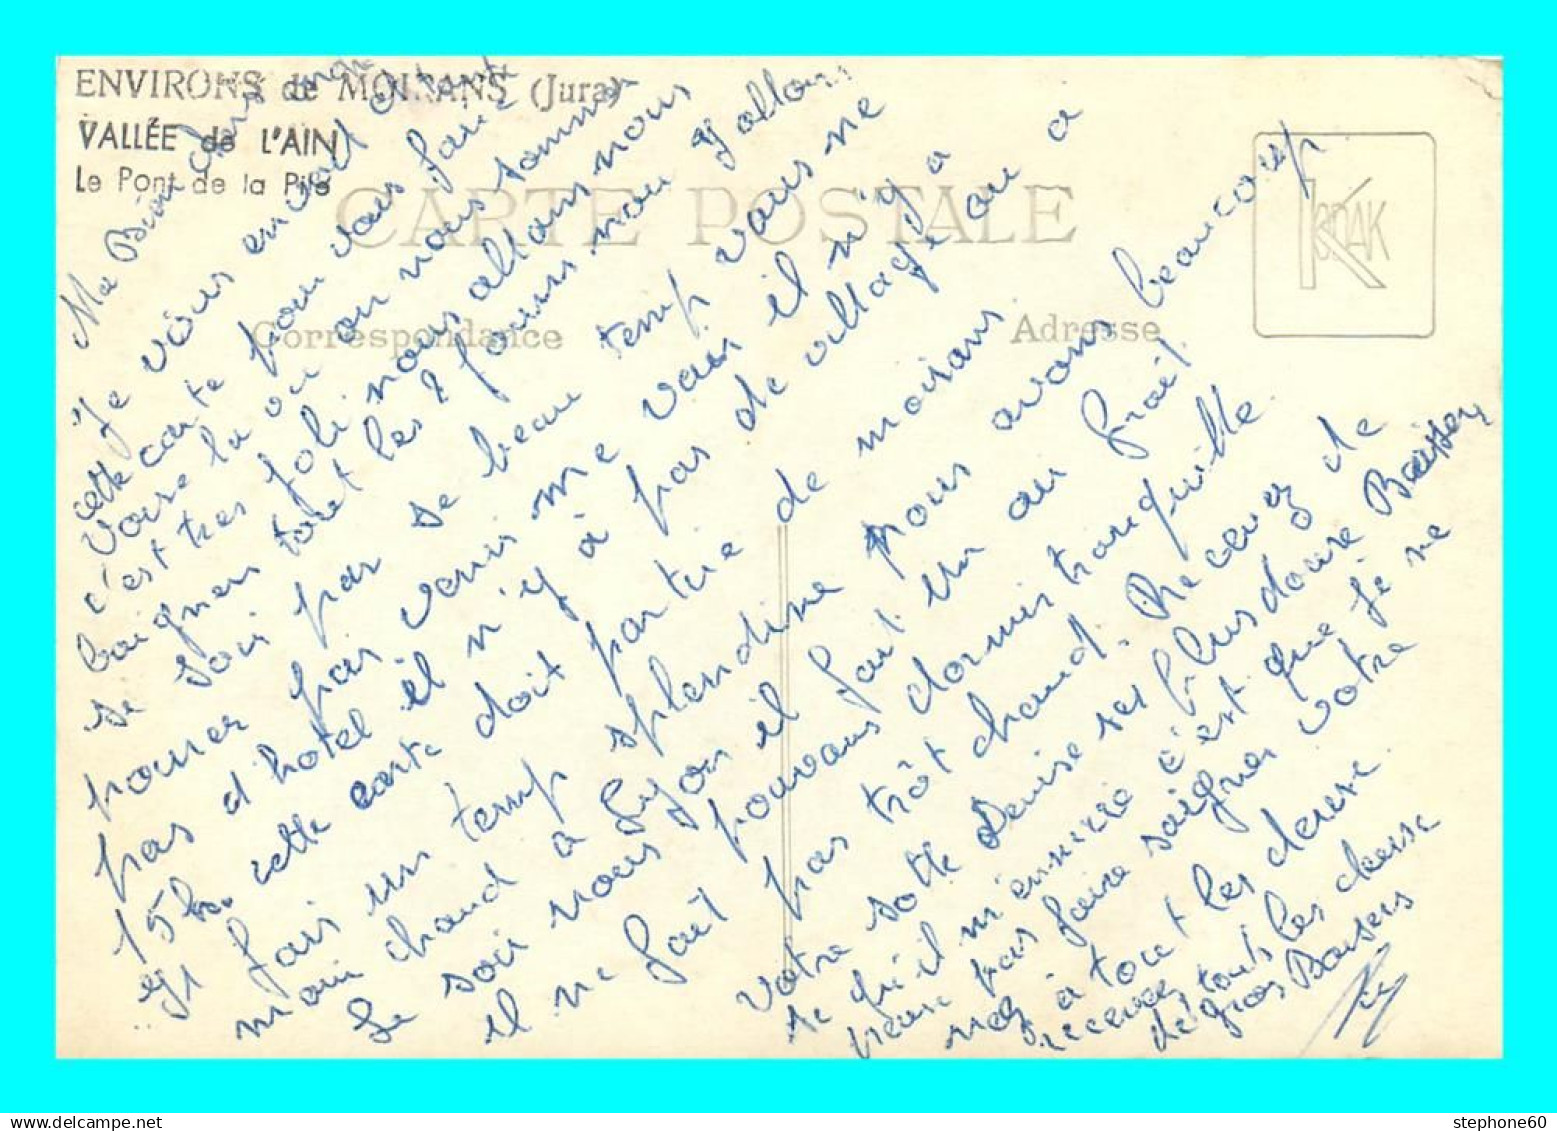 ENVIRONS de MOIRANS (Jura)
VALLÉE de L'AIN
Le Pont de la Pile
CARTE POSTALE
Correspondance
Adresse
KODAK
Ma Bien chers
Je vous envoit
cette carte pour vous faire
voire la ou on nous sommes
c'est tres joli nous allons nous
baigner tout les 2 jours nou y allons
se soir par se beau temp vous ne
pouver pas venir me voir il n'y a
pas d'hotel il n'y à pas de village on a
15 h. cette carte doit partire de moirans
yl fais un temp splendine nous avons beaucoup
moin chaud a Lyon il fait un au frait.
Le soir nous pouvons dormir tranquille
il ne fait pas trôt chaud. Recevez de
votre sotte Denise ses plus douse Baisser
se qu'il m'ennerie c'est que je ne
peux pas faire saigner votre
nez à tout les deuse
recever touts les deuse
de gros Baisers